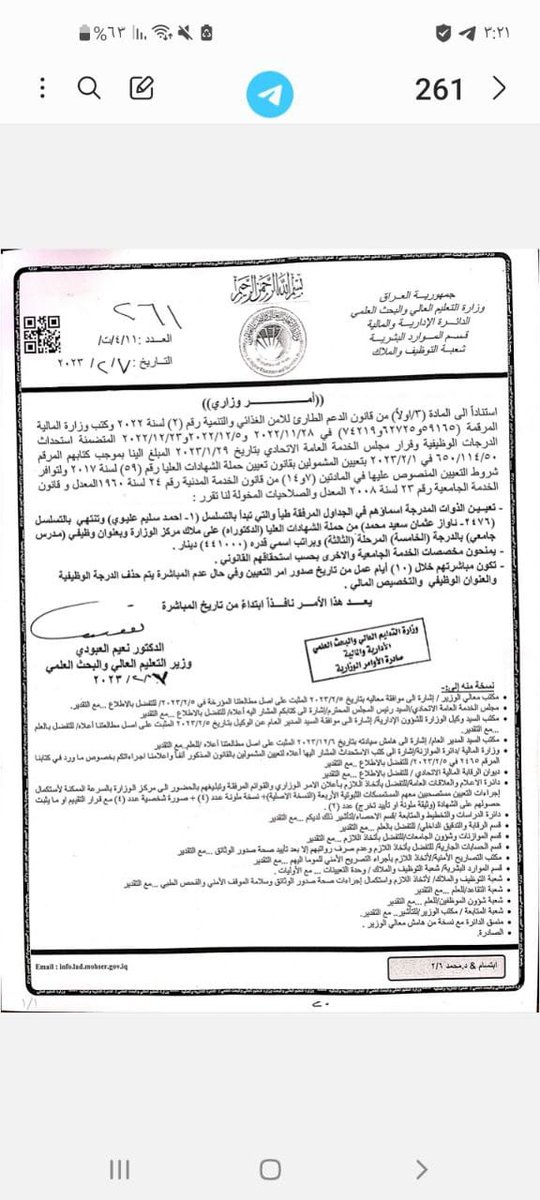 ٣:٢١
٪٦٣
261
بسم الله الرحمن الرحيم
جمهورية العراق
وزارة التعليم العالي والبحث العلمي
الدائرة الإدارية والمالية
قسم الموارد البشرية
شعبة التوظيف والملاك
٢٦١
العدد: ت/٤/١١/
التاريخ: ٢٠٢٣/٢/٧
((أمـــر وزاري))
استناداً الى المادة (٣/اولاً) من قانون الدعم الطارئ للامن الغذائي والتنمية رقم (٢) لسنة ٢٠٢٢ وكتب وزارة المالية
المرقمة (٥٩١٦٥و٦٢٧٢٥و٧٤٢١٩) في ٢٠٢٢/١١/٢٨ و٢٠٢٢/١٢/٥ و٢٠٢٢/١٢/٢٣ المتضمنة استحداث
الدرجات الوظيفية وقرار مجلس الخدمة العامة الاتحادي بتاريخ ٢٠٢٣/١/٢٩ المبلغ الينا بموجب كتابهم المرقم
٦٥٠/١١٤/٥٠ في ٢٠٢٣/٢/١ بتعيين المشمولين بقانون تعيين حملة الشهادات العليا رقم (٥٩) لسنة ٢٠١٧ ولتوافر
شروط التعيين المنصوص عليها في المادتين (٧و١٤) من قانون الخدمة المدنية رقم ٢٤ لسنة ١٩٦٠ المعدل و قانون
الخدمة الجامعية رقم ٢٣ لسنة ٢٠٠٨ المعدل والصلاحيات المخولة لنا تقرر :
- تعيين الذوات المدرجة اسماؤهم في الجداول المرفقة طياً والتي تبدأ بالتسلسل (١- احمد سليم عليوي) وتنتهي بالتسلسل
(٢٤٧٦- ناواز عثمان سعيد محمد) من حملة الشهادات العليا (الدكتوراه) على ملاك مركز الوزارة وبعنوان وظيفي (مدرس
جامعي) بالدرجة (الخامسة) المرحلة (الثالثة) وبراتب اسمي قدره (٤٤١٠٠٠) دينار .
- يمنحون مخصصات الخدمة الجامعية والاخرى بحسب استحقاقهم القانوني .
- تكون مباشرتهم خلال (١٠) أيام عمل من تاريخ صدور امر التعيين وفي حال عدم المباشرة يتم حذف الدرجة الوظيفية
والعنوان الوظيفي والتخصيص المالي .
يعد هذا الأمر نافذاً ابتداءً من تاريخ المباشرة
الدكتور نعيم العبودي
وزير التعليم العالي والبحث العلمي
٢٠٢٣/٢/٧
وزارة التعليم العالي والبحث العلمي
الأدارية والمالية
صادرة الأوامر الوزارية
نسخة منه إلى:-
مكتب معالي الوزير / إشارة الى موافقة معاليه بتاريخ ٢٠٢٣/٢/٥ المثبت على اصل مطالعتنا المؤرخة في ٢٠٢٣/٢/٥ /للتفضل بالاطلاع ...مع التقدير.
مجلس الخدمة العامة الاتحادي/السيد رئيس المجلس المحترم/إشارة الى كتابكم المشار اليه أعلاه/للتفضل بالاطلاع ...مع التقدير.
مكتب السيد وكيل الوزارة للشؤون الإدارية/ إشارة الى موافقة السيد المدير العام عن الوكيل بتاريخ ٢٠٢٣/٢/٥ المثبت على اصل مطالعتنا أعلاه/ للتفضل بالعلم
...مع التقدير.
مكتب السيد المدير العام/ إشارة الى هامش سيادته بتاريخ المثبت على اصل مطالعتنا أعلاه /للعلم ...مع التقدير
وزارة المالية / دائرة الموازنة/إشارة الى كتب الاستحداث المشار اليها أعلاه لتعيين المشمولين بالقانون المذكور آنفاً وأعلامنا اجراءاتكم بخصوص ما ورد في كتابنا
المرقم ٢٤٦٥ في ٢٠٢٣/٢/٥/للتفضل بالاطلاع ...مع التقدير
ديوان الرقابة المالية الاتحادي / للتفضل بالاطلاع ...مع التقدير
دائرة الاعلام والعلاقات العامة/للتفضل بأتخاذ اللازم بأعلان الامر الوزاري والقوائم المرفقة وتبليغهم بالحضور الى مركز الوزارة بالسرعة الممكنة لأستكمال
إجراءات التعيين مستصحبين معهم المستمسكات الثبوتية الأربعة (النسخة الاصلية)+ نسخة ملونة عدد (٤) + صورة شخصية عدد (٤) مع قرار التقييم او ما يثبت
حصولهم على الشهادة (وثيقة ملونة أو تأييد تخرج) عدد (٢) .
دائرة الدراسات والتخطيط والمتابعة /قسم الاحصاء/لتأشير ذلك لديكم ...مع التقدير
قسم الرقابة والتدقيق الداخلي/ للتفضل بالعلم ...مع التقدير
قسم الموازنات وشؤون الجامعات/للتفضل بأتخاذ اللازم ...مع التقدير
قسم الحسابات الجارية/ للتفضل بأتخاذ اللازم وعدم صرف رواتبهم إلا بعد تأييد صحة صدور الوثائق ...مع التقدير
مكتب التصاريح الأمنية/لأتخاذ اللازم بأجراء التصريح الأمني للموما اليهم ...مع التقدير
قسم الموارد البشرية/ شعبة التوظيف والملاك / وحدة التعيينات ... مع الأوليات .
شعبة التوظيف والملاك/ لأتخاذ اللازم واستكمال إجراءات صحة صدور الوثائق وسلامة الموقف الأمني والفحص الطبي ...مع التقدير
شعبة التقاعد/للعلم ...مع التقدير
شعبة شؤون الموظفين/للعلم ...مع التقدير
شعبة المتابعة / مكتب الوزير/للتأشير ...مع التقدير.
منسق الدائرة مع نسخة من هامش معالي الوزير .
الصادرة.
Email : info.lad.mohser.gov.iq
ابتسام & د.محمد ٢/٦
١/١